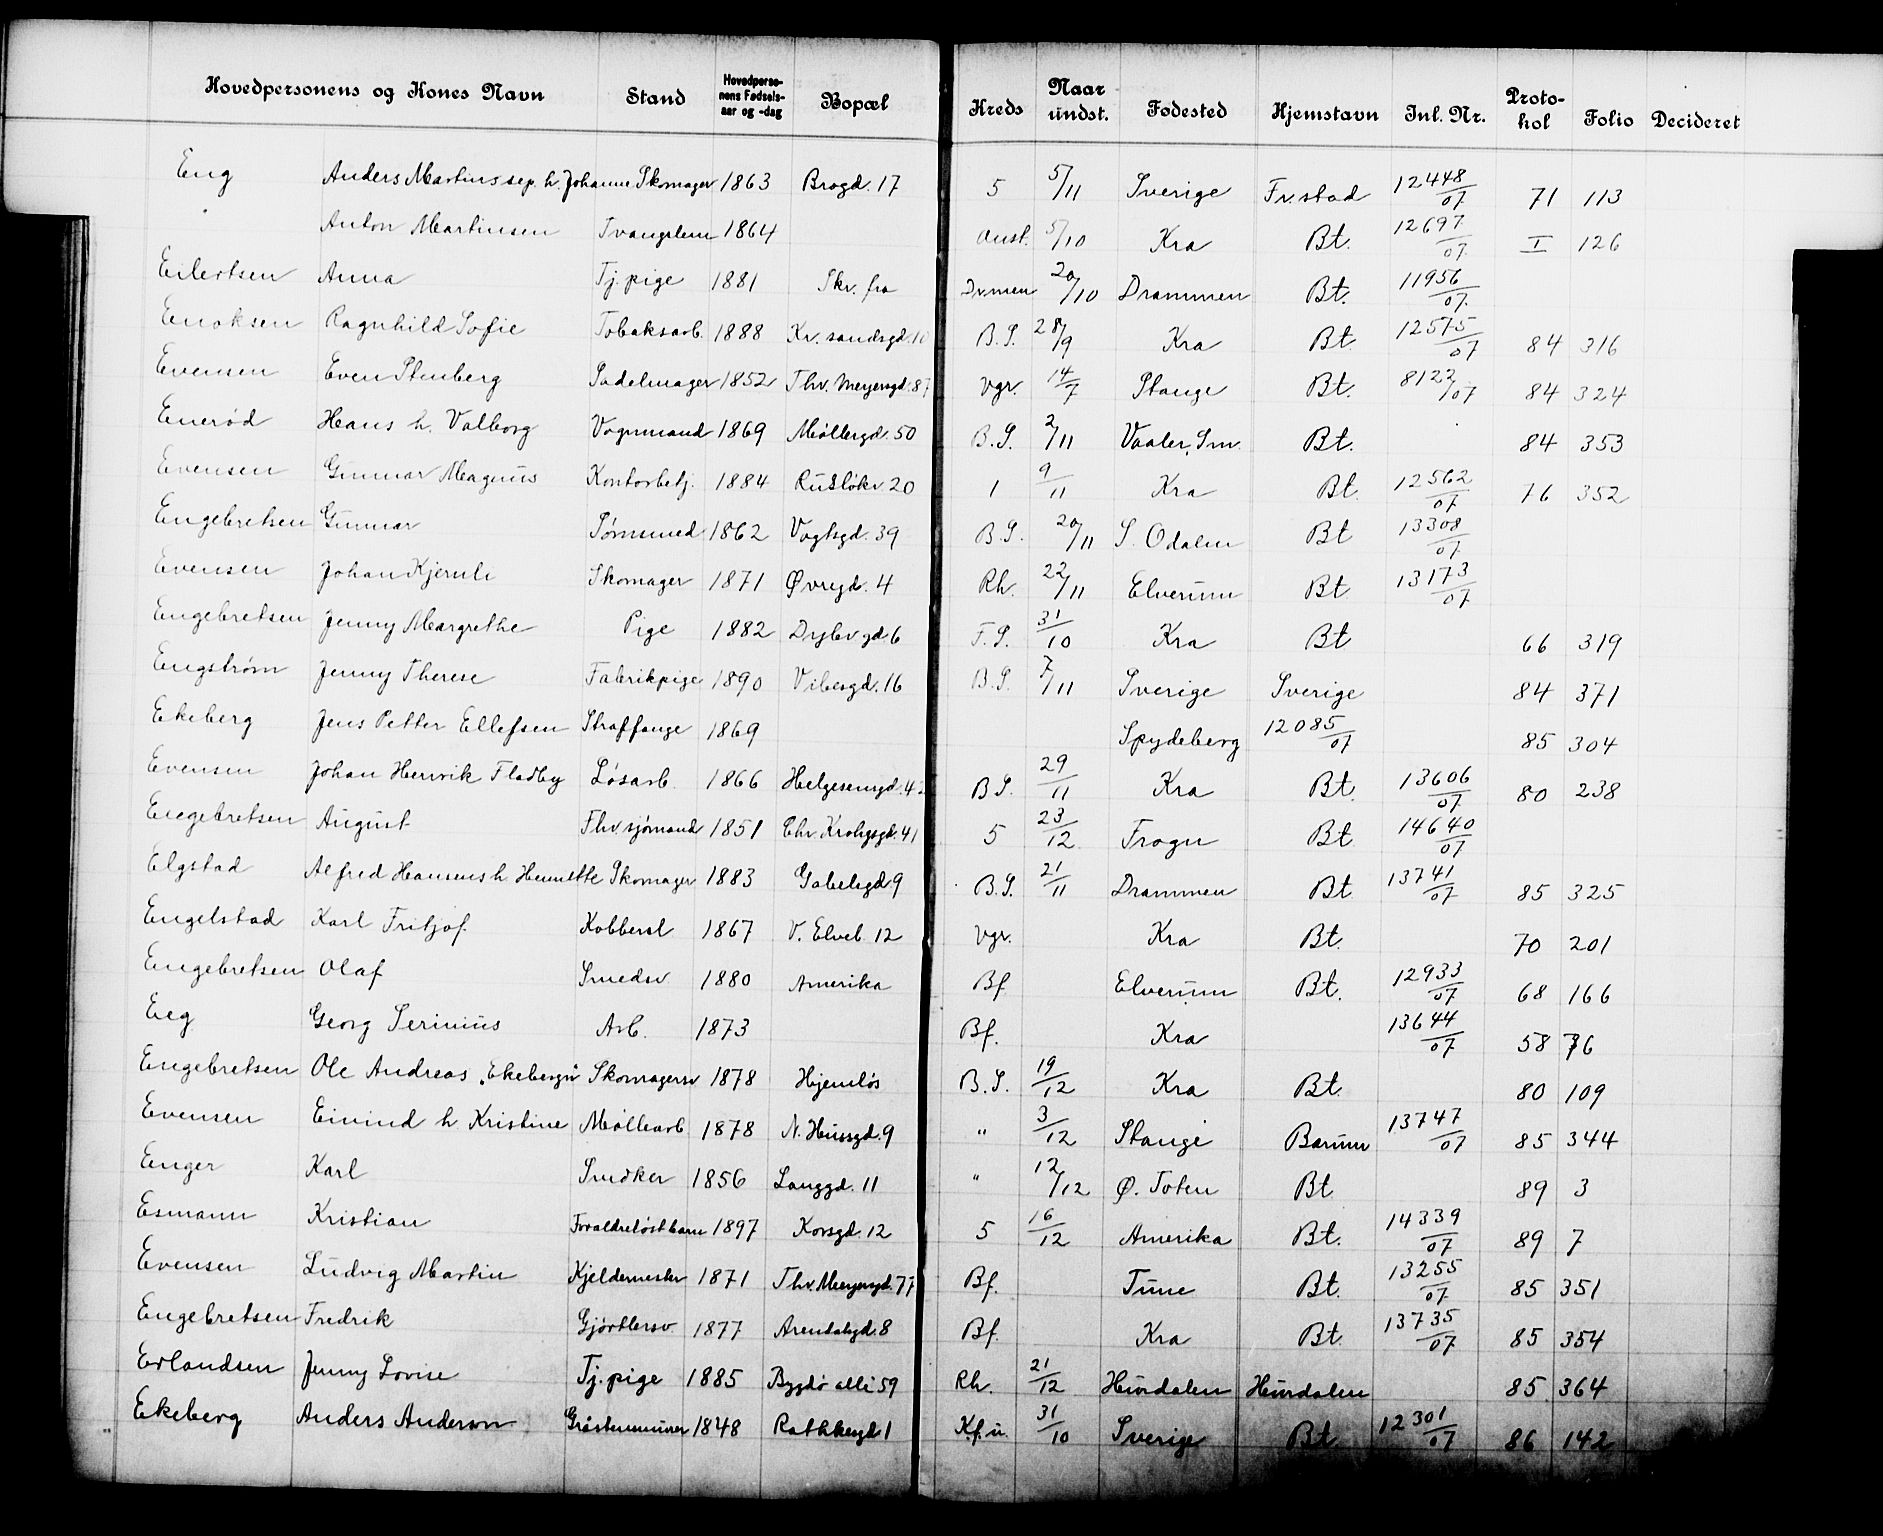 Hovedpersonens og Kones Navn Stand Hovedpersonens Fødselsaar og -dag Bopæl Kreds Naar undst. Fødested Hjemstavn Inl. Nr. Protokol Folio Decideret
Eng Anders Martins sep. h. Johanne Skomager 1863 Brogd. 17 5 5/11 Sverige Fr.stad 12448/07 71 113
Anton Martinsen Tvangslem 1864 5/10 Kra Bt. 12697/07 I 126
Eilertsen Anna Tj. pige 1881 Skr. fra Drmen 20/10 Drammen Bt. 11956/07
Enoksen Ragnhild Sofie Tobaksarb. 1888 Kr. sandsgd. B.S. 28/9 Kra Bt. 12575/07 84 316
Evensen Even Stenberg Sadelmager 1852 Thv. Meyersgd. 87 Vgr. 14/7 Stange Bt. 8122/07 84 324
Enerød Hans h. Valborg Vognmand 1869 Møllergd. 50 B.S. 2/11 Vaaler, Sm. Bt. 84 353
Evensen Gunnar Magnus Kontorbetj. 1884 Rusløkv. 20 1 9/11 Kra Bt. 12562/07 76 352
Engebretsen Gunnar Sømsmed 1862 Vogtsgd. 39 B.S. 20/11 S. Odalen Bt 13308/07
Evensen Johan Kjernli Skomager 1871 Øvregd. 4 Rh. 22/11 Elverum Bt 13173/07
Engebretsen Jenny Margrethe Pige 1882 Dybvgd 6 F.S. 31/10 Kra Bt 66 319
Engstrøm Jenny Therese Fabrikpige 1890 Vibesgd. 16 B.S. 7/11 Sverige Sverige 84 371
Ekeberg Jens Petter Ellefsen Straffange 1869 Spydeberg 12085/07 85 304
Evensen Johan Henrik Fladby Løsarb. 1866 Helgesensgd. B.S. 29/11 Kra Bt. 13606/07 80 238
Engebretsen August Fhv. sjømand 1851 Chr. Krohgsgd. 41 5 23/12 Frogn Bt. 14640/07
Elgstad Alfred Hansens h. Henriette Skomager 1883 Gabelsgd 9 B.S. 21/11 Drammen Bt. 13741/07 85 325
Engelstad Karl Fritjof Kobbersl. 1867 V. Elveb. 12 Vgr. Kra Bt. 70 201
Engebretsen Olaf Smedsv. 1880 Amerika Bf Elverum Bt. 12933/07 68 166
Eeg Georg Serinius Arb. 1873 Bf. Kra 13644/07 58 76
Engebretsen Ole Andreas "Ekebergn" Skomagersv 1878 Hjemløs B.S. 19/12 Kra Bt. 80 109
Evensen Eivind h Kristine Møllearb 1878 N. Hussgd. 9 " 3/12 Stange Bærum 13747/07 85 344
Enger Karl Snedker 1856 Langgd. 11 " 12/12 Ø. Toten Bt. 89 3
Esmann Kristian Forældreløst barn 1897 Korsgd. 12 5 16/12 Amerika Bt. 14339/07 89 7
Evensen Ludvig Martin Kjeldermester 1871 Thv. Meyersgd. 77 Bf. Tune Bt. 13255/07 85 351
Engebretsen Fredrik Gjørtlersv 1877 Arendalsgd. 8 Bf. Kra Bt. 13735/07 85 354
Erlandsen Jenny Lovise Tj. pige 1885 Bygdø alle 59 Rh. 21/12 Hurdalen Hurdalen 85 364
Ekeberg Anders Anderson Gråstensmurer 1848 Rathkesgd 1 K.f.u. 31/10 Sverige Bt 12301/07 86 142